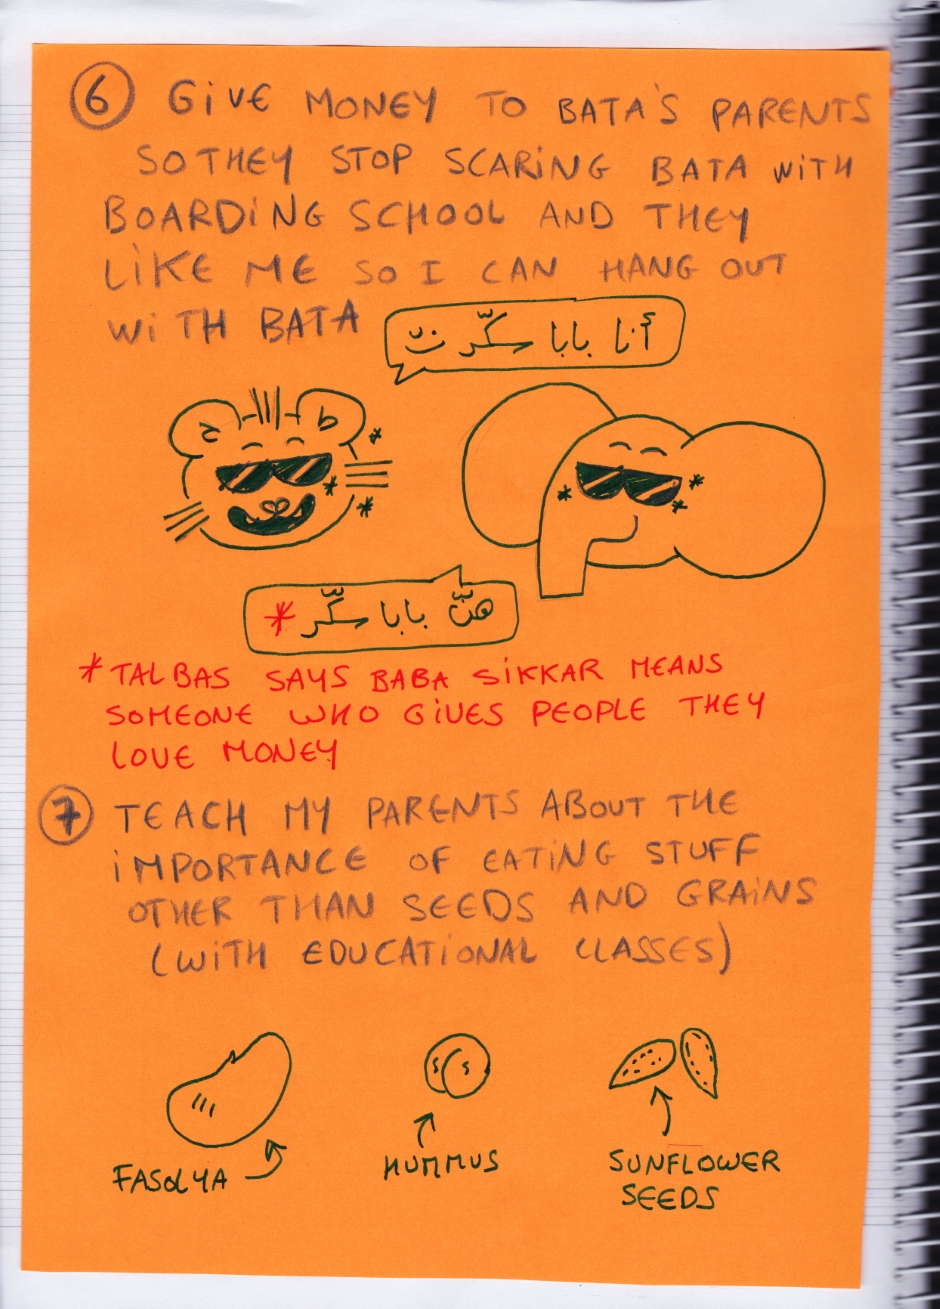 6 GIVE MONEY TO BATA'S PARENTS
SO THEY STOP SCARING BATA WITH
BOARDING SCHOOL AND THEY
LIKE ME SO I CAN HANG OUT
WITH BATA
أنا بابا سكّر
بابا سكّر *
* TALBAS SAYS BABA SIKKAR MEANS
SOMEONE WHO GIVES PEOPLE THEY
LOVE MONEY
7 TEACH MY PARENTS ABOUT THE
IMPORTANCE OF EATING STUFF
OTHER THAN SEEDS AND GRAINS
(WITH EDUCATIONAL CLASSES)
FASOLYA
HUMMUS
SUNFLOWER
SEEDS